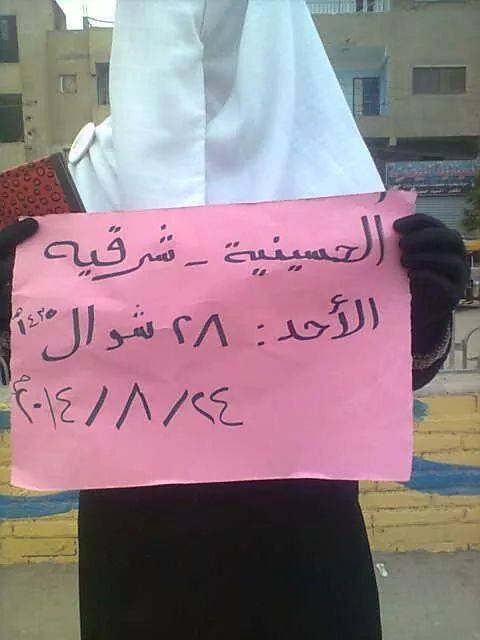 الحسينية - شرقيه
الأحد: ٢٨ شوال ١٤٣٥هـ
٢٤/٨/٢٠١٤م